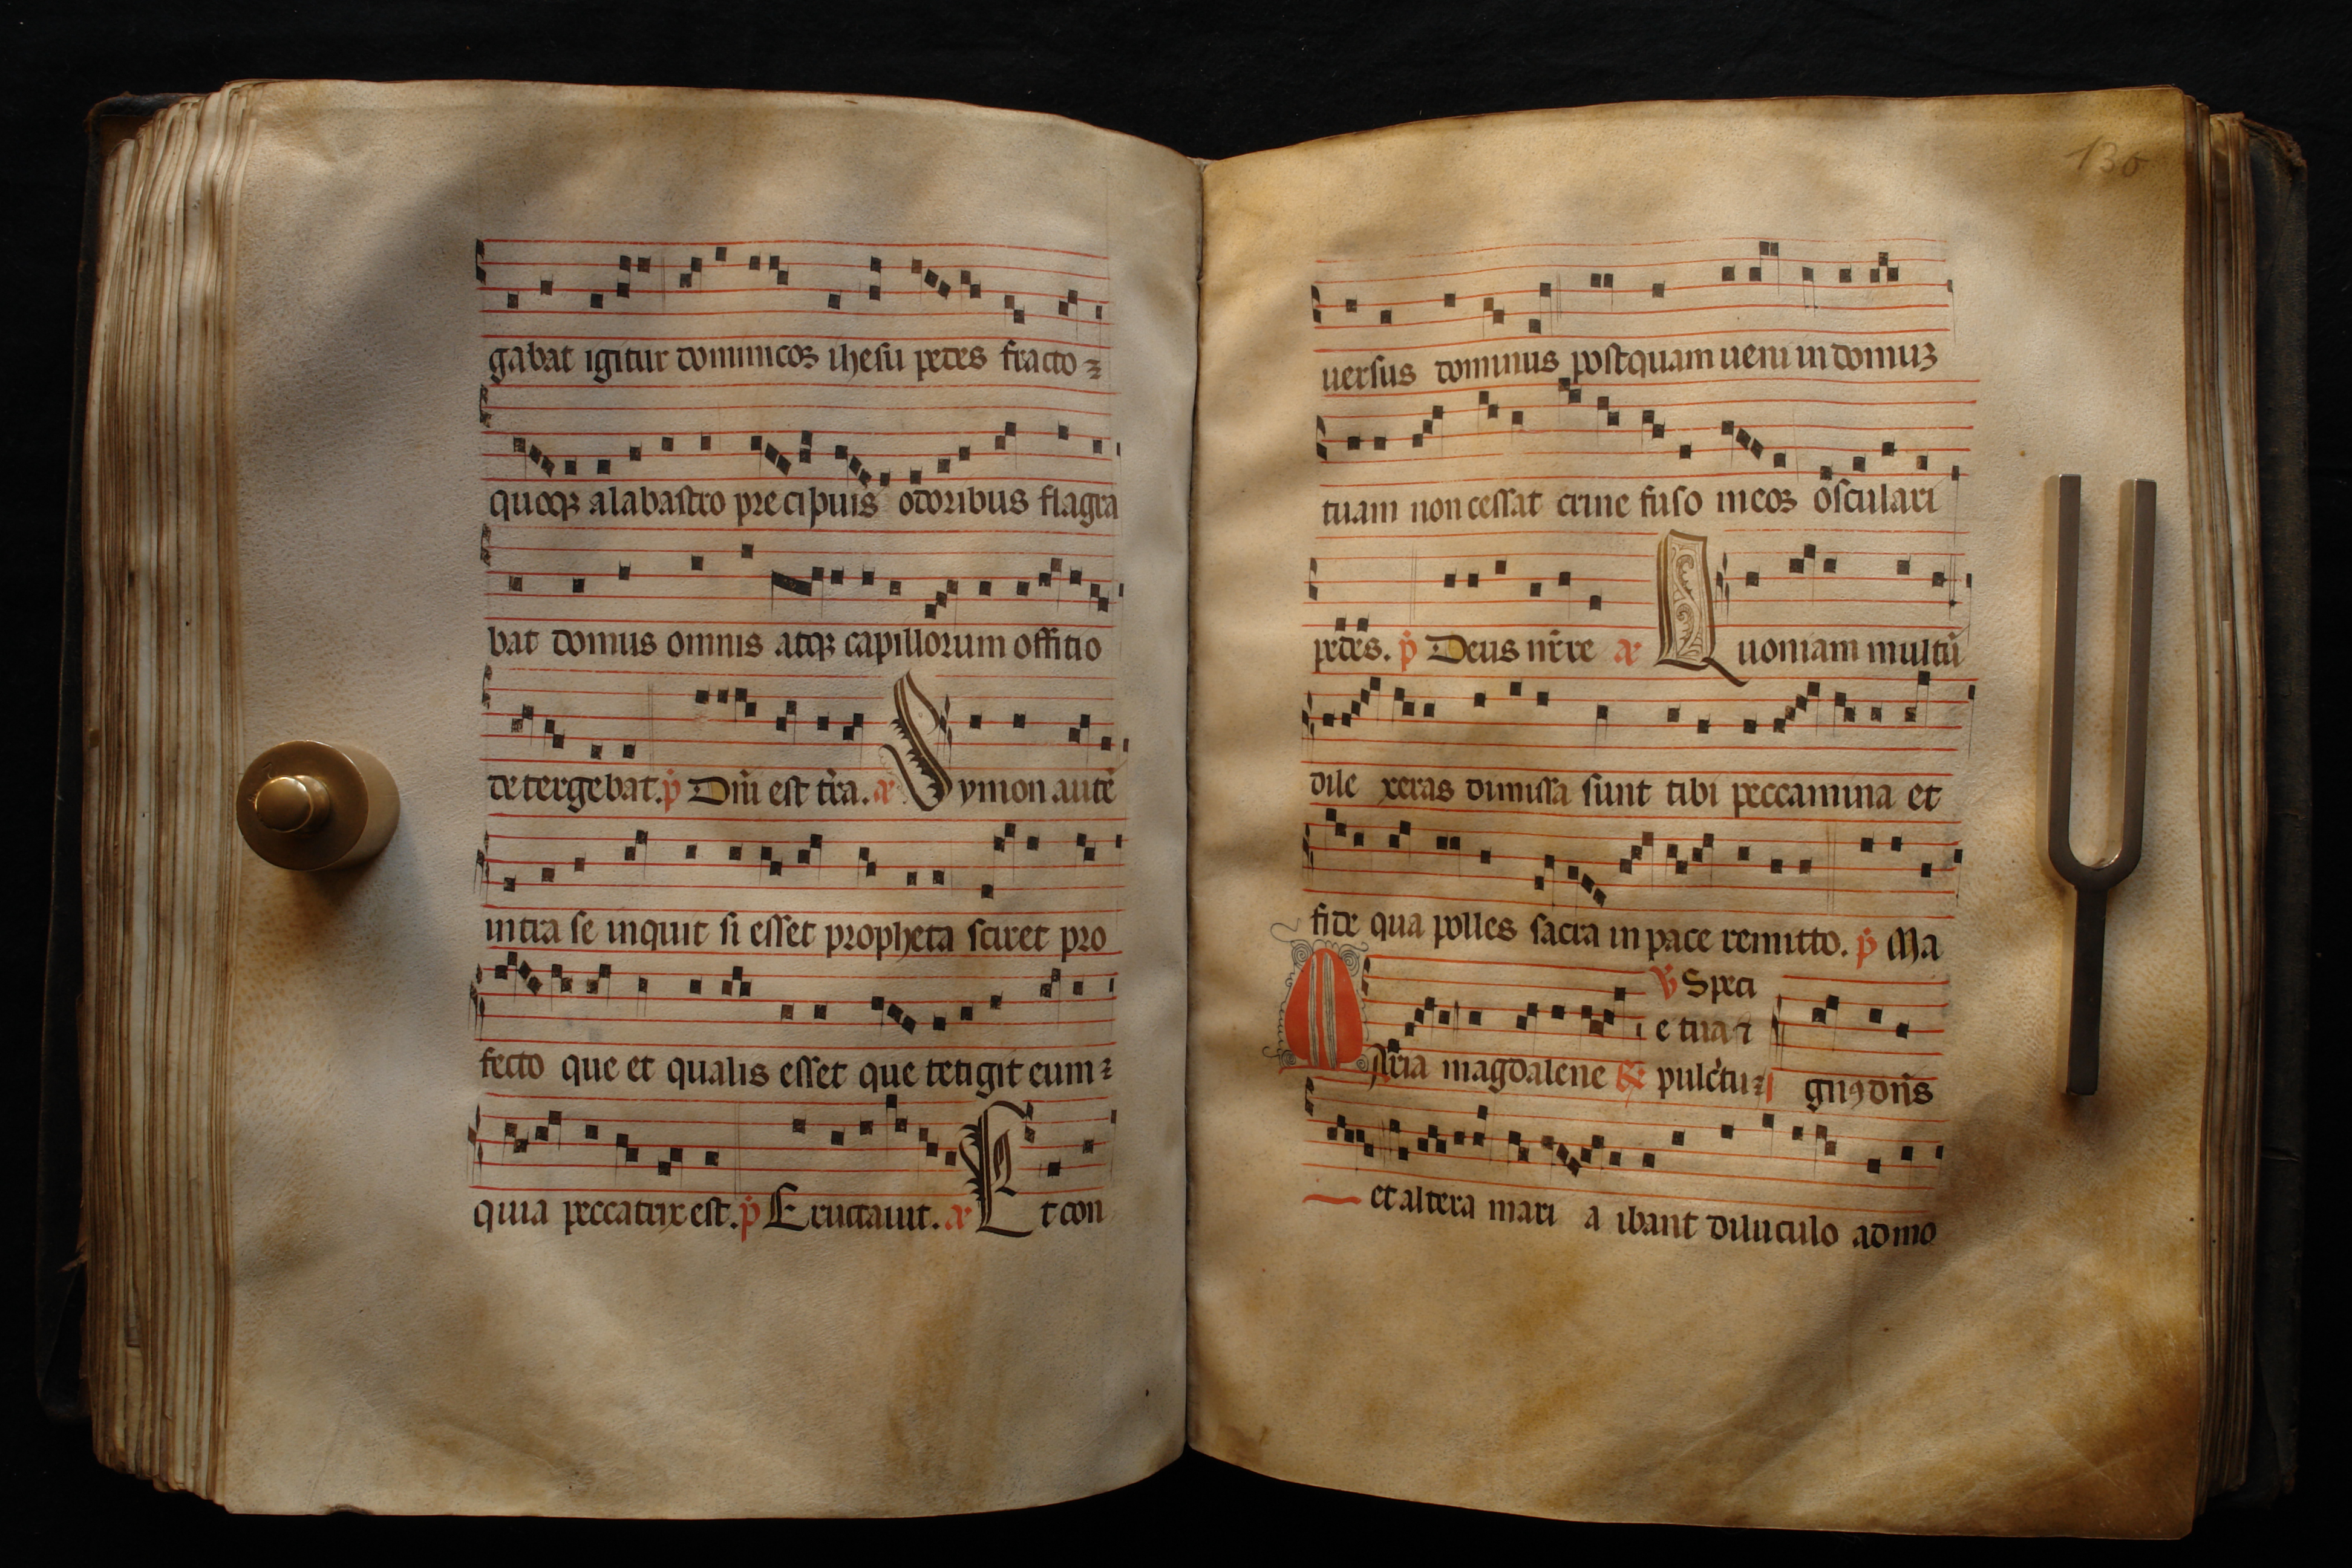 gabat igitur dominicoʒ ihesu pedes fracto⁊
quoqʒ alabastro precipuis odoribus flagra
bat domus omnis atqʒ capillorum offitio
detergebat. p̄ Dn̄i est tr̄a. añ Symon autē
intra se inquit si esset propheta sciret pro
fecto que et qualis esset que tetigit eum⁊
quia peccatrix est. p̄ Eructauit. añ Et con
130
uersus dominus postquam ueni in domuʒ
tuam non cessat crine fuso meoʒ osculari
pedes. p̄ Deus nr̄ re añ Quoniam multū
dile xeras dimissa sunt tibi peccamina et
fide qua polles sacra in pace remitto. p̄ Ma
℣ Speci
e tua ⁊
Maria magdalene ℟ pulc̄tu⁊ gnꝰ dn̄s
et altera mari a ibant diluculo ad mo